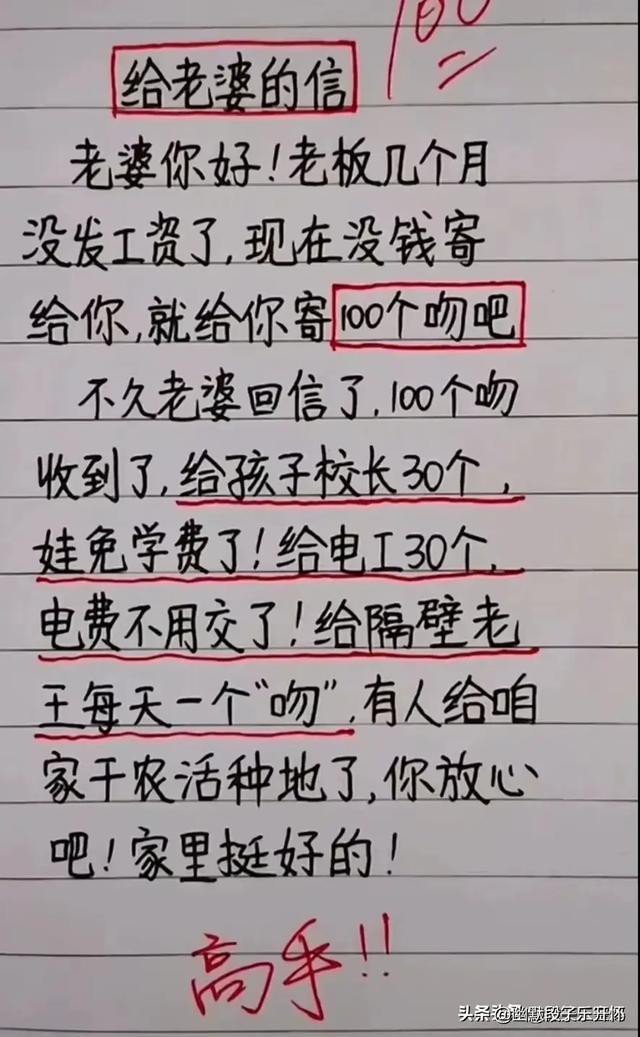 100
给老婆的信
老婆你好!老板几个月
没发工资了,现在没钱寄
给你,就给你寄100个吻吧
不久老婆回信了,100个吻
收到了,给孩子校长30个,
娃免学费了!给电工30个,
电费不用交了!给隔壁老
王每天一个“吻”,有人给咱
家干农活种地了,你放心
吧!家里挺好的!
高手!!
头条 @幽默段子乐开怀